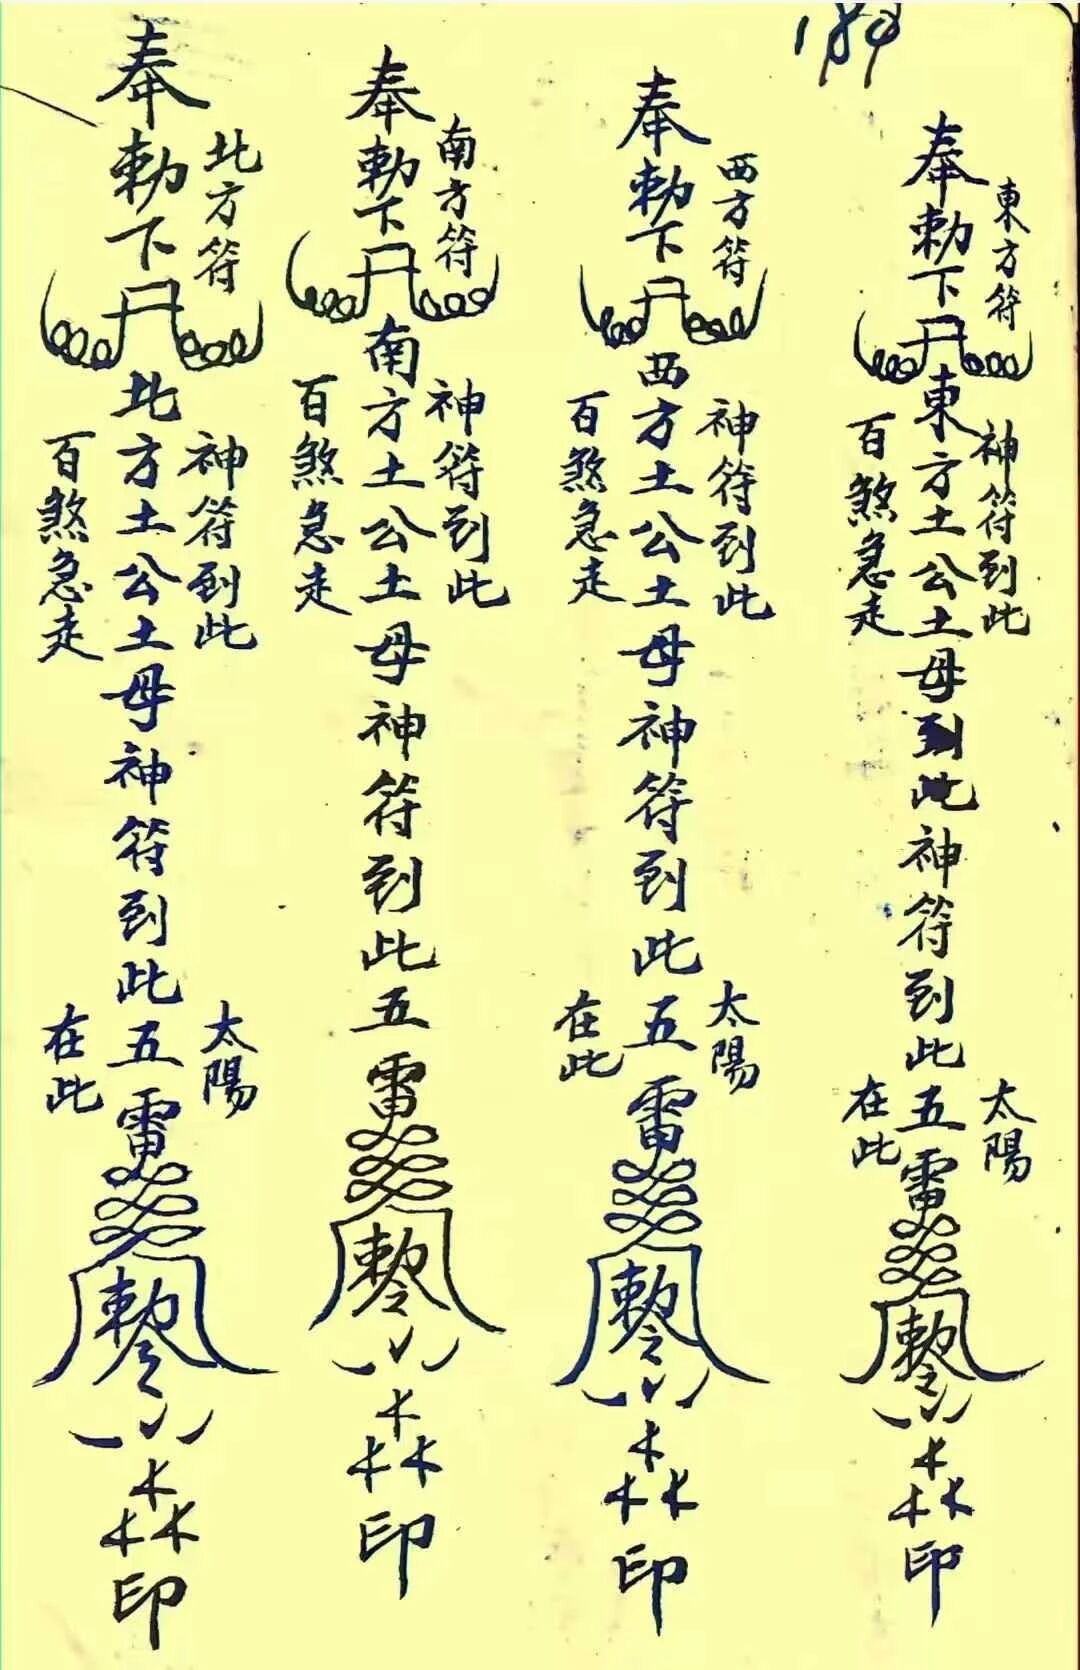 184
東方符
奉勅下
神符到此
東方土公土母到此神符到此五雷
百煞急走
太陽
在此
勅令
印
西方符
奉勅下
神符到此
西方土公土母神符到此五雷
百煞急走
太陽
在此
勅令
印
南方符
奉勅下
神符到此
南方土公土母神符到此五雷
百煞急走
勅令
印
北方符
奉勅下
神符到此
北方土公土母神符到此五雷
百煞急走
太陽
在此
勅令
印